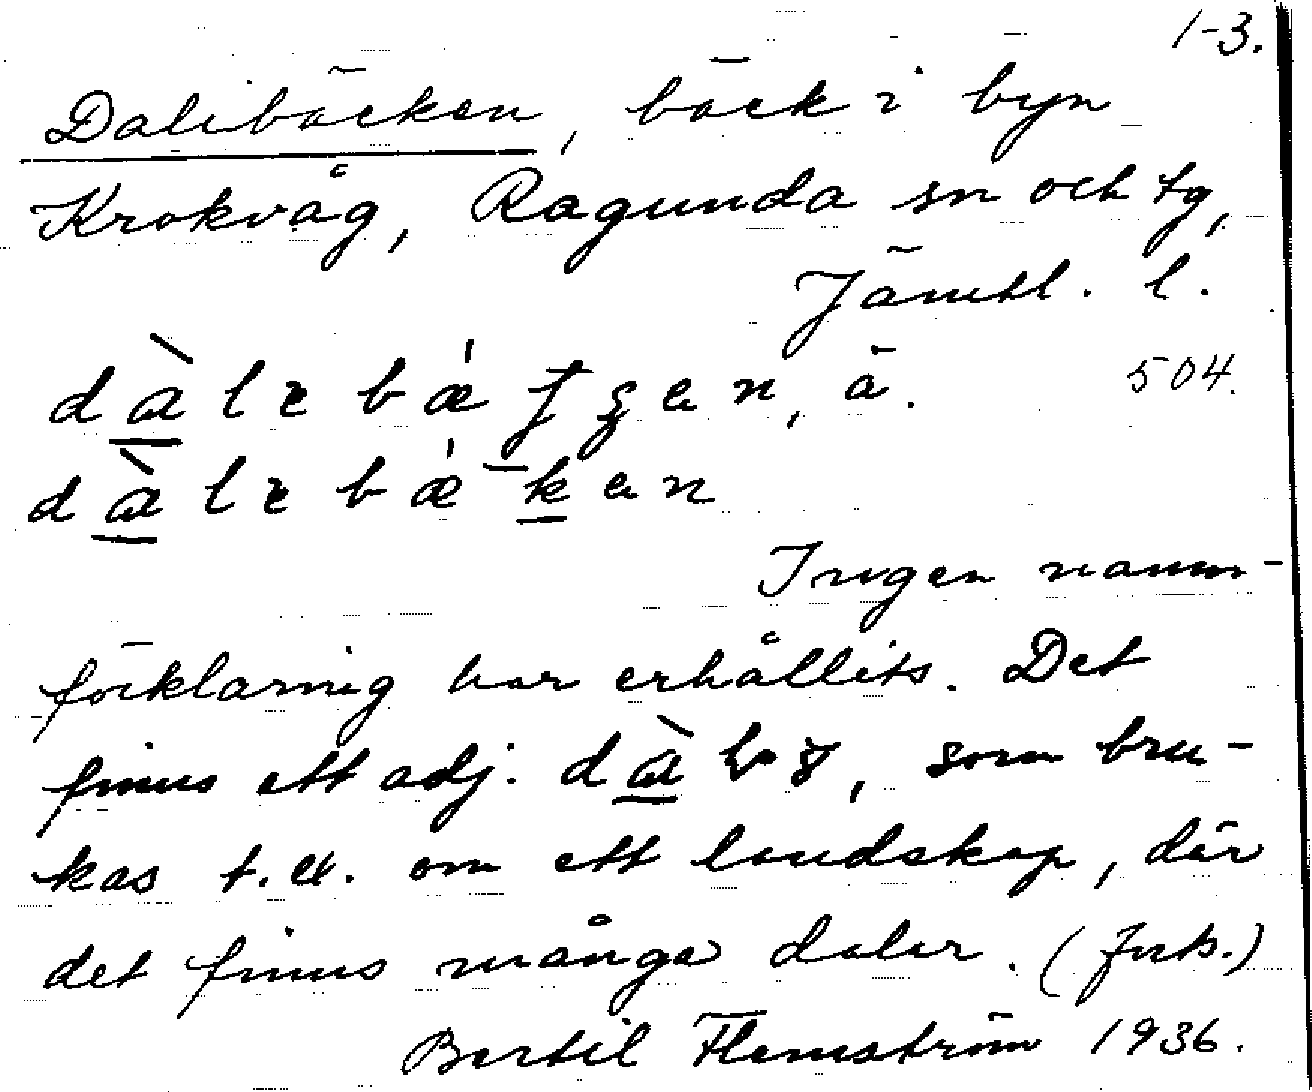 1-3.
Dalibäcken, bäck i byn
Krokvåg, Ragunda sn och tg,
Jämtl. l.
504.
Ingen namn-
förklaring har erhållits. Det
finns ett adj. , som bru-
kas t.ex. om ett landskap, där
det finns många dalar.
Bertil Flemström 1936.